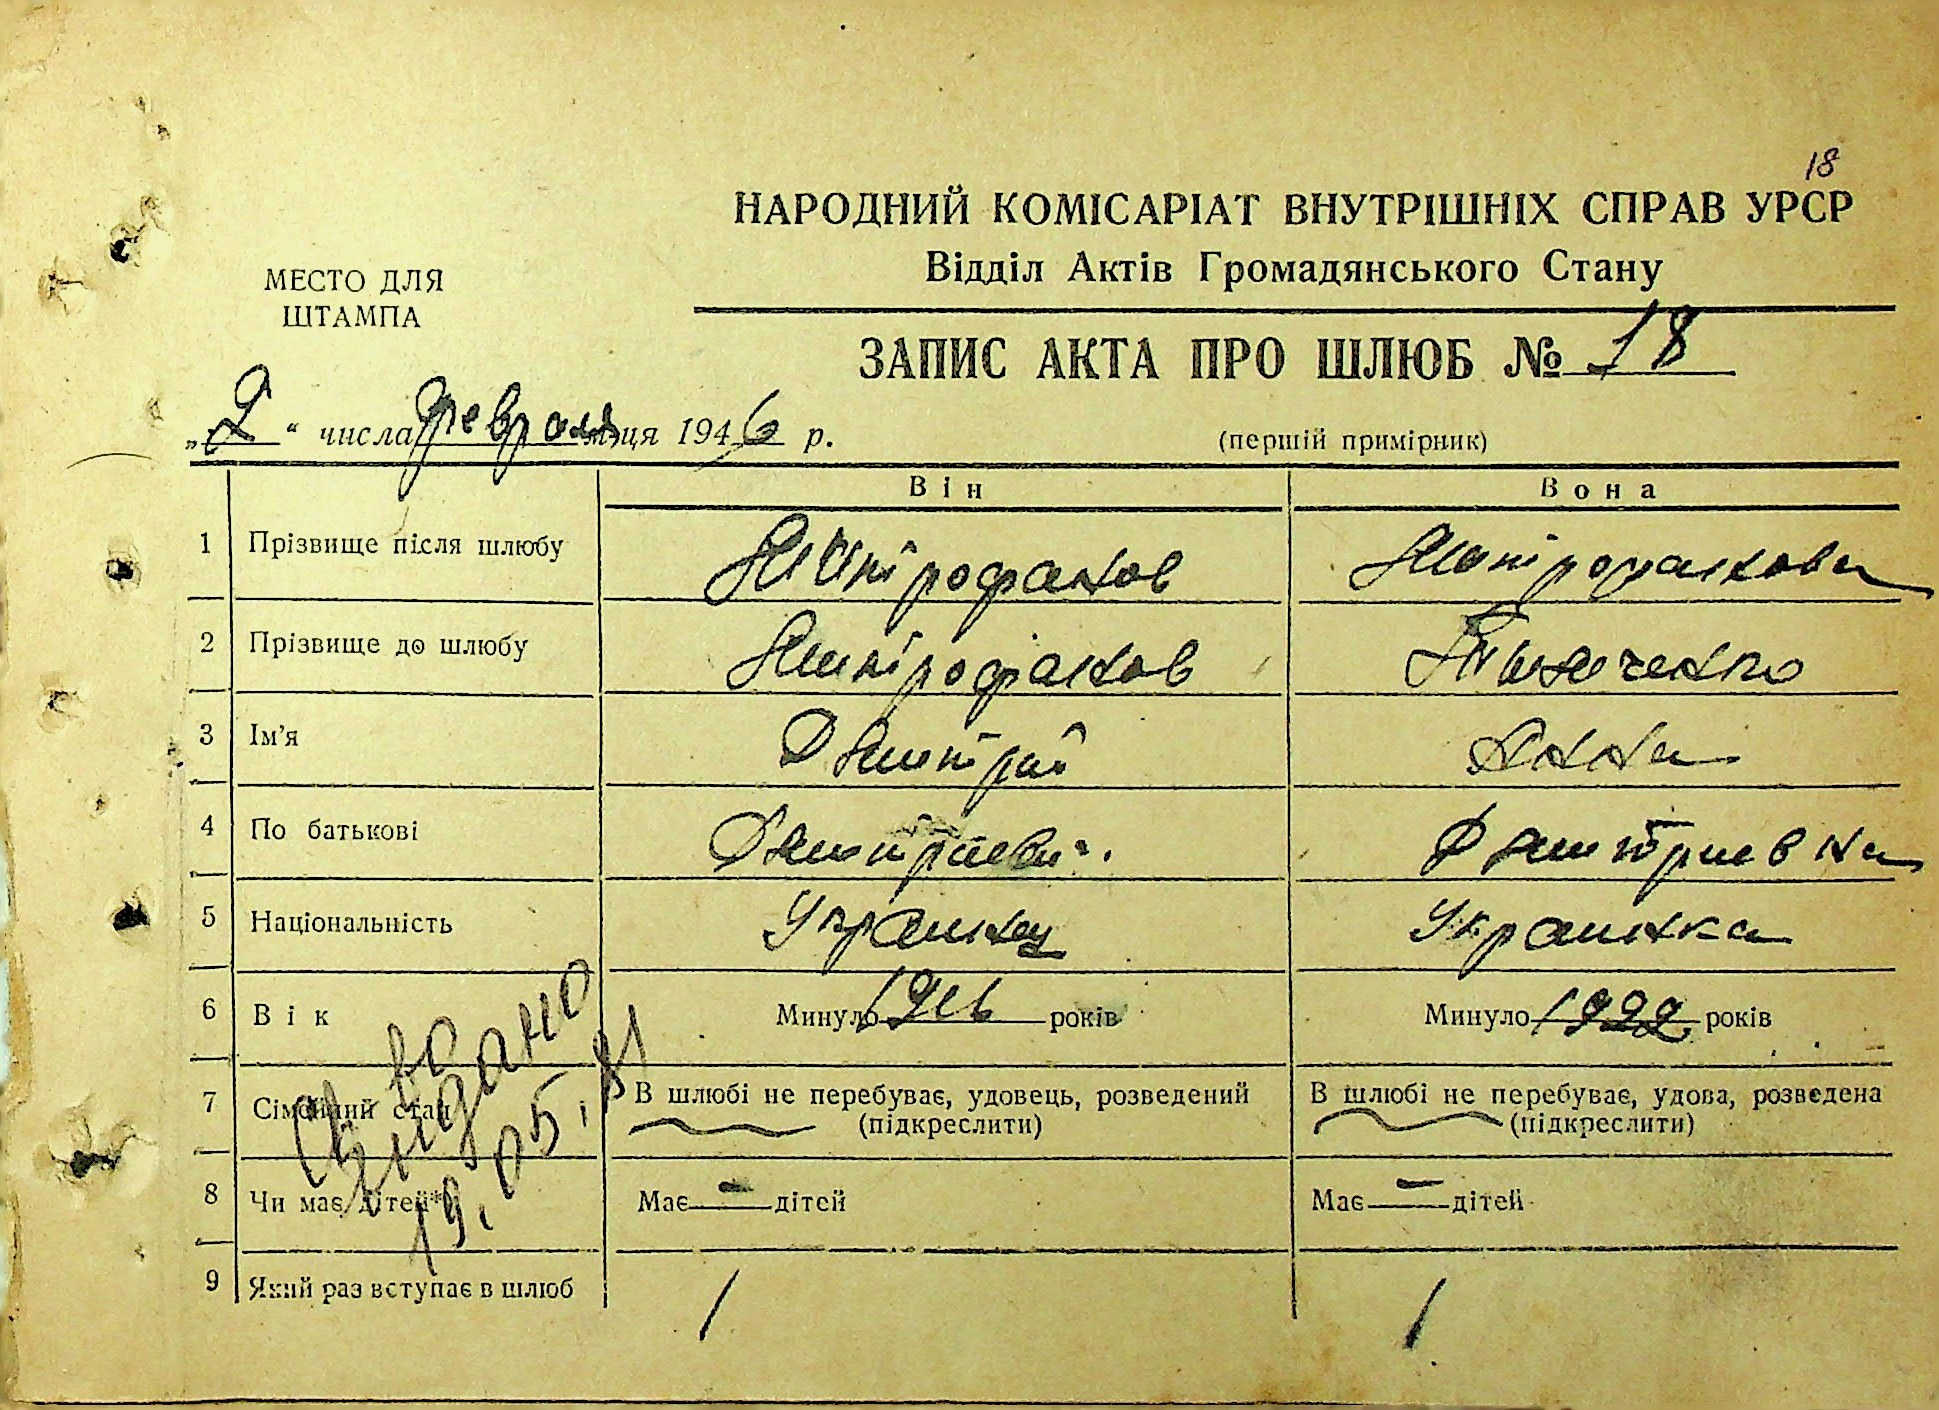 18
НАРОДНИЙ КОМІСАРІАТ ВНУТРІШНІХ СПРАВ УРСР
Відділ Актів Громадянського Стану
МЕСТО ДЛЯ
ШТАМПА
ЗАПИС АКТА ПРО ШЛЮБ № 18
„2“ числа февраля м-ця 1946 р.
(перший примірник)
Він Вона
1 Прізвище після шлюбу Митрофанов Митрофанова
2 Прізвище до шлюбу Митрофанов
3 Ім'я Дмитрий Анна
4 По батькові Дмитриевич. Дмитриевна
5 Національність Украинец Украинка
6 Вік Минуло років Минуло 1922 років
7 Сімейний стан В шлюбі не перебуває, удовець, розведений В шлюбі не перебуває, удова, розведена
(підкреслити) (підкреслити)
8 Чи має дітей*) Має — дітей Має — дітей
9 Який раз вступає в шлюб 1 1
видано
19.05.81